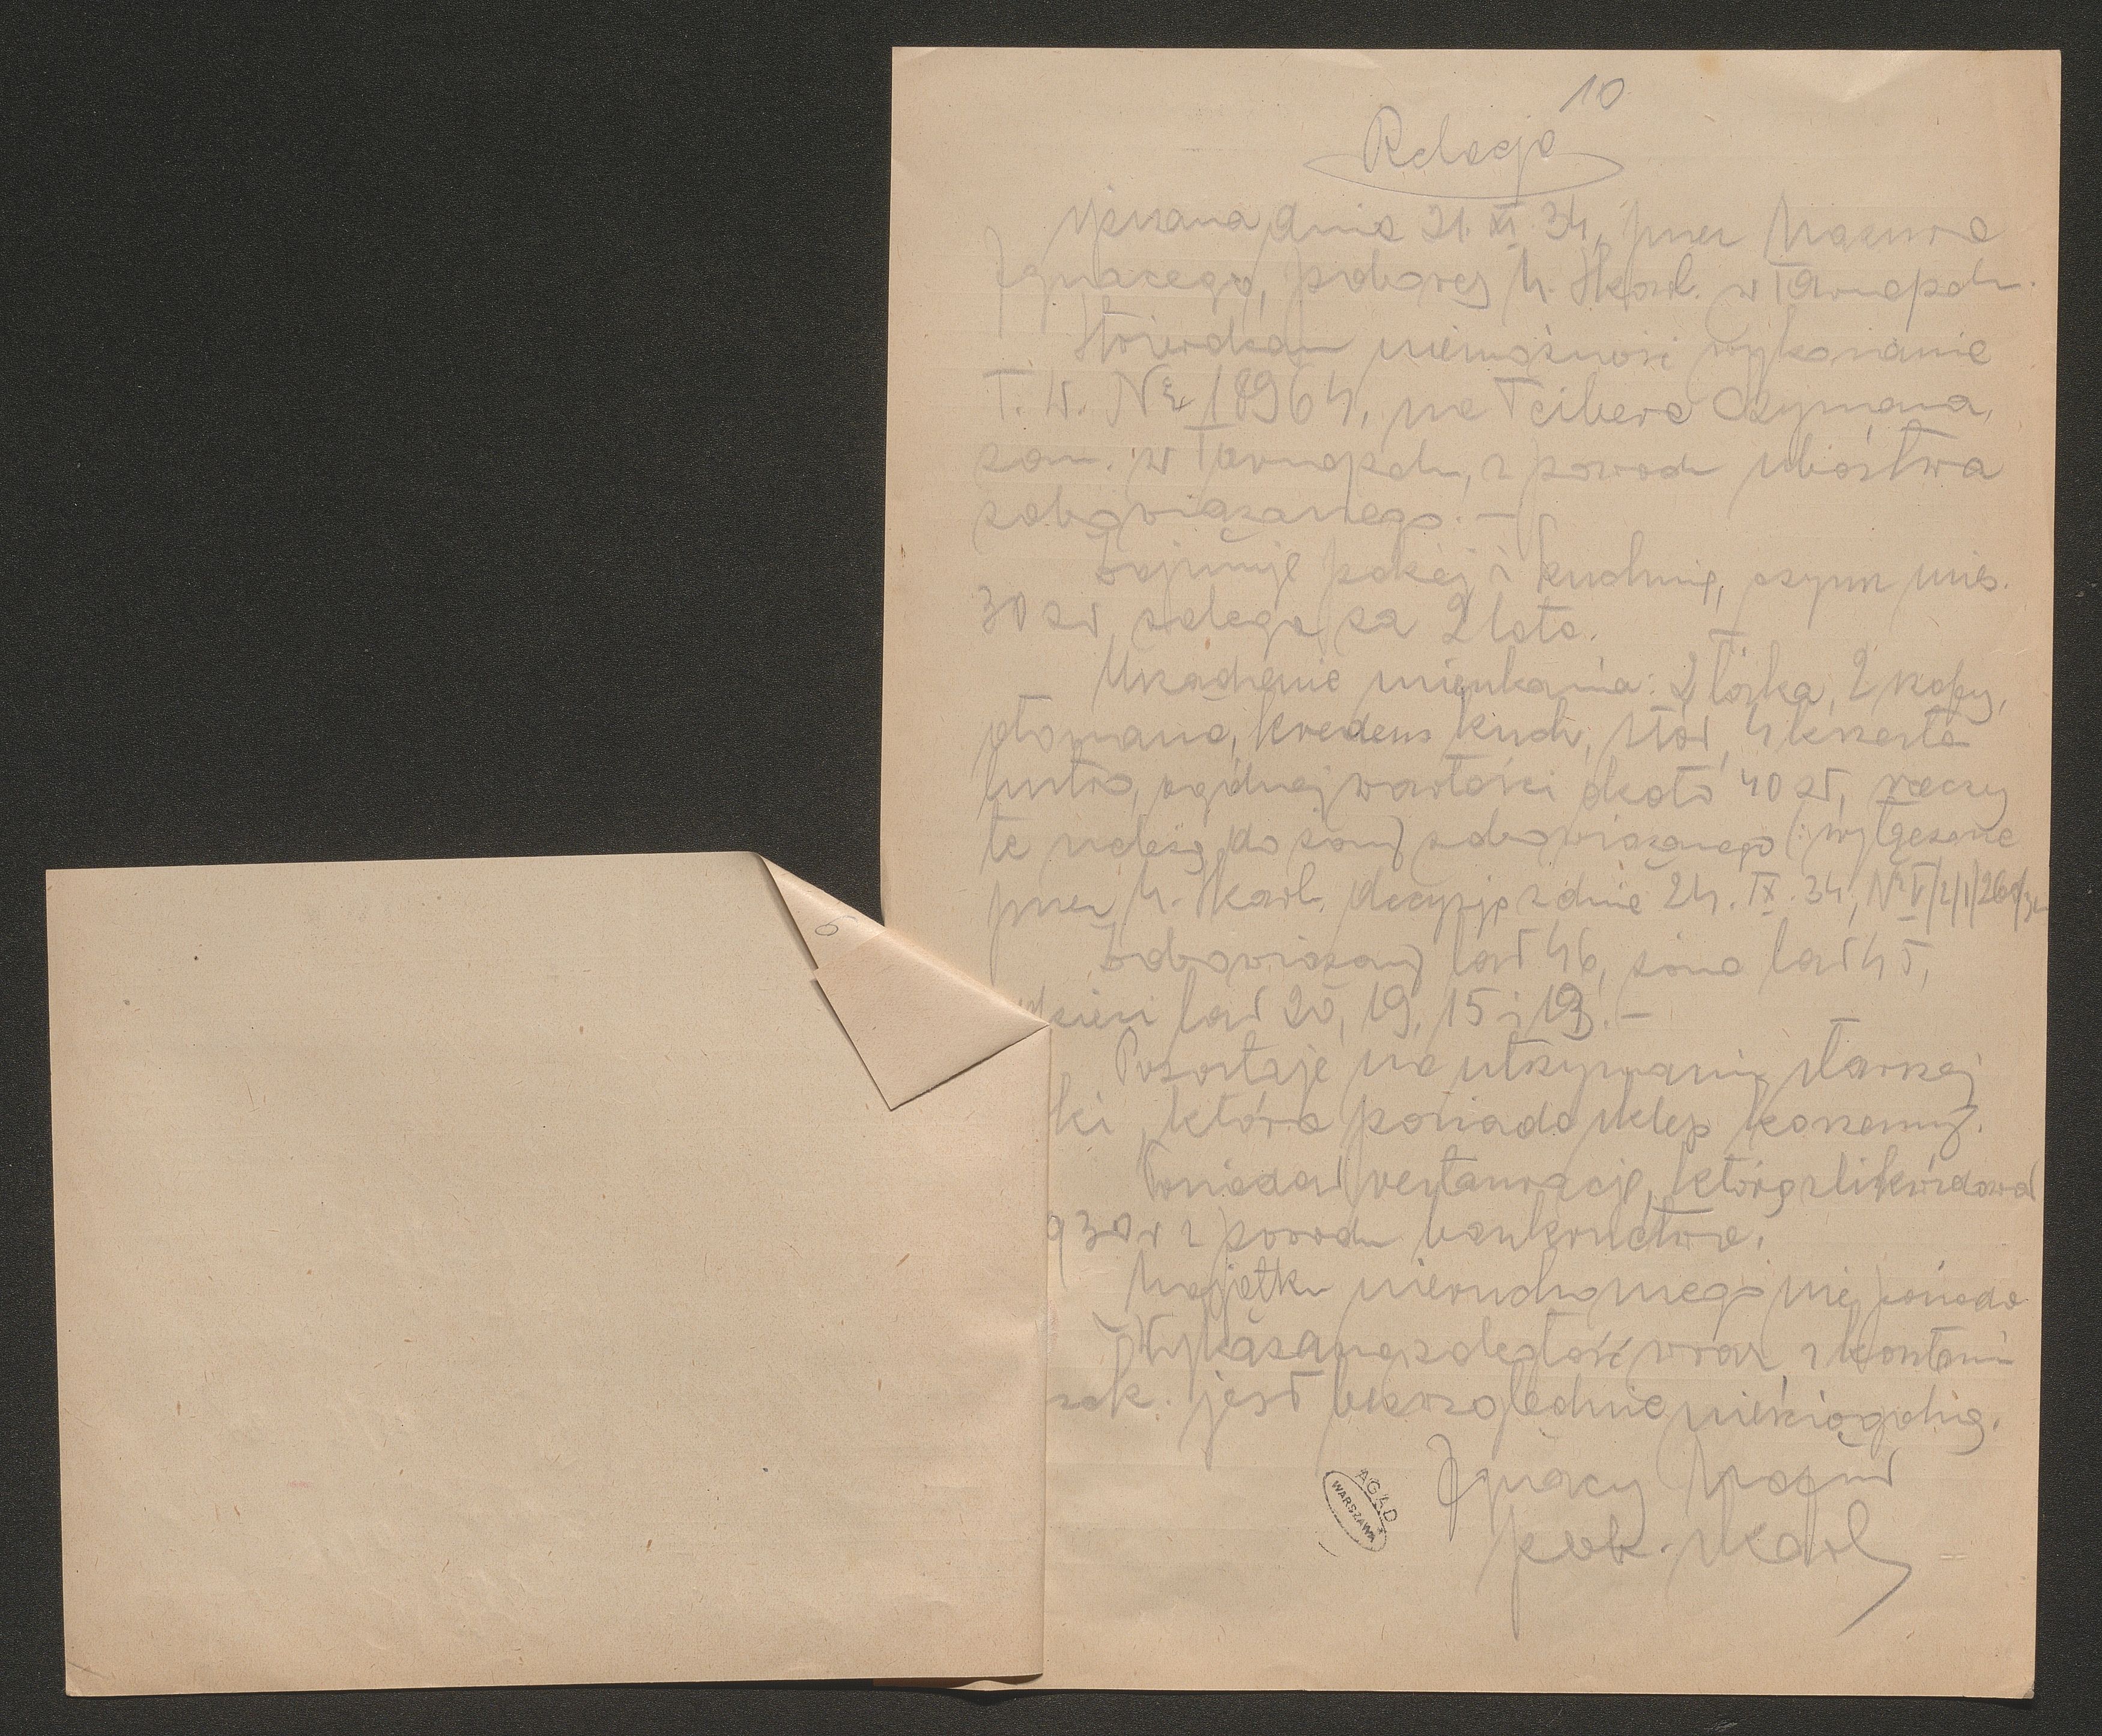 10
Relacja
spisana dnia 21.XI.34, przez Mazura
Ignacego, poborcę U. Skarb. w Tarnopolu.
Stwierdzam niemożność wykonania
T. W. № 18964, na Teibera Szymona,
zam. w Tarnopolu, z powodu ubóstwa
zobowiązanego. —
Zajmuje pokój i kuchnię, czynsz mies.
30 zł, zalega za 2 lata.
Urządzenie mieszkania: 2 łóżka, 2 szafy,
otomana, kredens kuch, stół, 4 krzesła
lustro, ogólnej wartości około 40 zł, rzeczy
te należą do żony zobowiązanego (: wyłączone
przez U. Skarb. decyzją z dnia 24.IX.34, № V/2/1/260/34
Zobowiązany lat 46, żona lat 45,
dzieci lat 20, 19, 15 i 13. —
Pozostaje na utrzymaniu starszej
ki, która posiada sklep koszerny.
Posiadał restaurację, którą zlikwidował
930 r z powodu bankructwa.
Majątku nieruchomego nie posiada
Wykazana zaległość wraz z kosztami
zek. jest bezwzględnie nieściągalną.
Ignacy Mazur
pob. skarb
AGAD
WARSZAWA
9